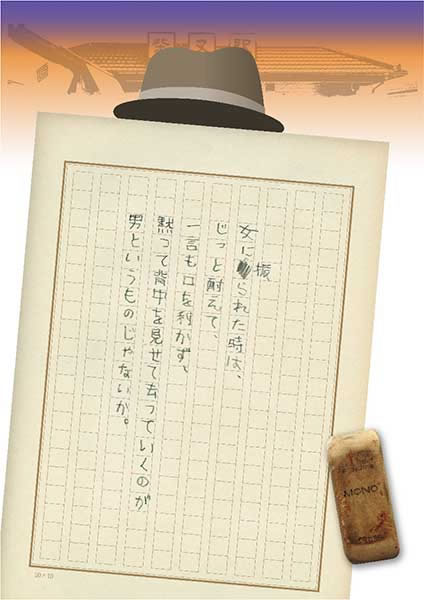 柴又駅
女に振られた時は、
じっと耐えて、
一言も口を利かず、
黙って背中を見せて去っていくのが
男というものじゃないか。
MONO
20×10